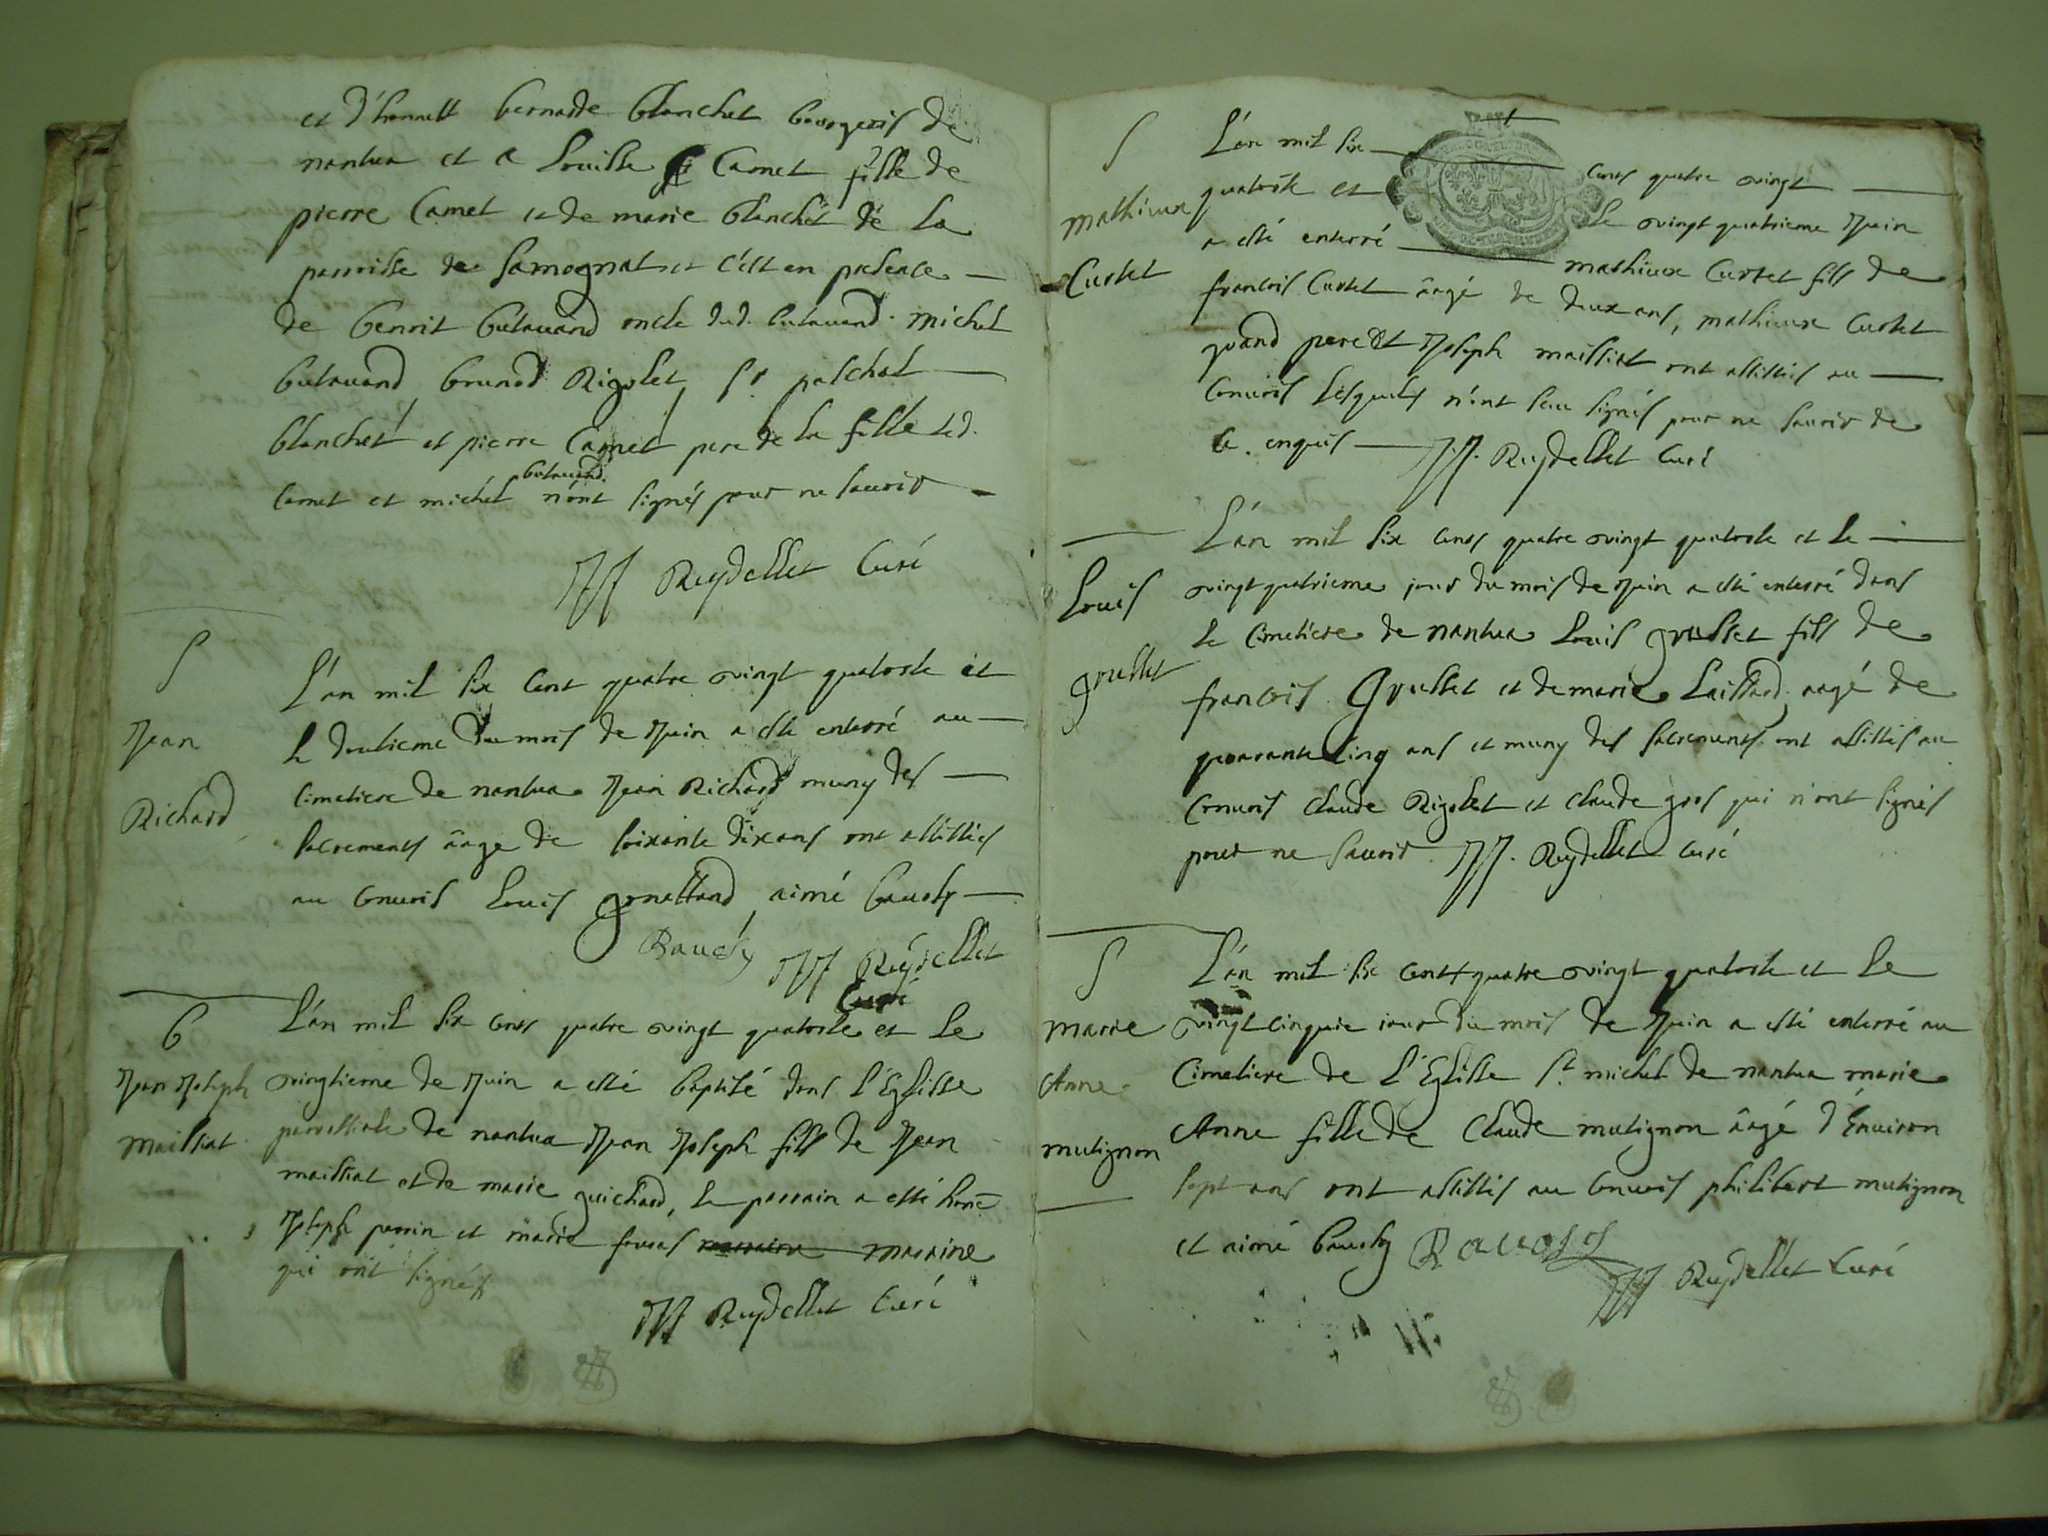 et d'honnette bernarde blanchet bourgeois de
nantua et a Louise Camet fille de
pierre Camet et de marie blanchet de la
parroisse de Samognat et c'est en presence
de benoit butavand oncle dud. butavand. michel
butavand, brunod Rigolet, Sr paschal
blanchet et pierre Camet pere de la fille led.
Camet et michel butavand n'ont signés pour ne scavoir
JJ Reydellet Curé
S
Jean
Richard
L'an mil six cent quatre vingt quatorse et
le dousieme du mois de Juin a esté enterré au
Cimetiere de nantua Jean Richard muny des
sacrements âage de soixante dix ans ont assistés
au Convois Louis aimé baudy
Baudy JJ Reydellet
Curé
B
Jean Joseph
maissiat
L'an mil six cens quatre vingt quatorse et le
vingtieme de Juin a esté baptisé dans l'Eglisse
parossiale de nantua Jean Joseph fils de Jean
maissiat et de marie guichard, le parrain a esté hone
Joseph perrin et marie maraine
qui ont signés
JJ Reydellet Curé
S
mathieux
Curtet
L'an mil six cens quatre vingt
quatorse et le vingt quatrieme Juin
a esté enterré mathieux Curtet fils de
francois Curtet âagé de deux ans, mathieux Curtet
grand pere et Joseph maissiat ont assistés au
Convois lesquels n'ont sceu signés pour ne scavoir de
ce enquis JJ. Reydellet Curé
Louis
grusset
L'an mil six cens quatre vingt quatorse et le
vingt quatrieme jour du mois de Juin a esté enterré dans
le Cimetiere de nantua Louis grusset fils de
francois Grusset et de marie aagé de
quarante cinq ans et muny des sacrements ont assistés au
Convois Claude Rigolet et Claude gros qui n'ont signés
pour ne scavoir JJ. Reydellet curé
S
Marie
Anne
mutignon
L'an mil six cent quatre vingt quatorse et le
vingt cinquie jour du mois de Juin a esté enterré au
Cimetiere de l'Eglisse St michel de nantua marie
Anne fille de Claude mutignon âagé d'Environ
sept ans ont assistés au Convois philibert mutignon
et aimé baudy Baudy
JJ Reydellet Curé